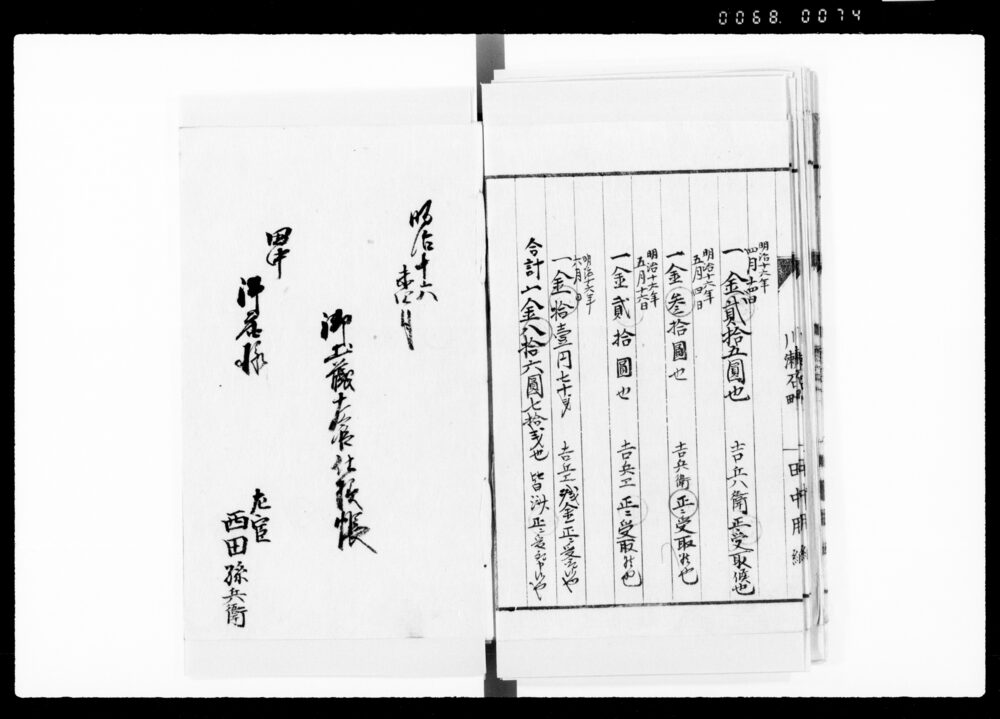 0068. 0074
川瀬石町
田中用紙
明治十六年
四月十四日
一金貳拾五圓也 吉兵衛 正ニ受取候也
明治十六年
五月四日
一金叁拾圓也 吉兵衛 正ニ受取候也
明治十六年
五月十六日
一金貳拾圓也 吉兵衛 正ニ受取候也
明治十六年
六月 日
一金拾壹円七十 吉兵衛 残金正ニ受取候也
合計一金八拾六圓七拾 也 皆済 正ニ受取候也
明治十六
未四月
御土蔵 仕預帳
田中
御店様
左官
西田孫兵衛